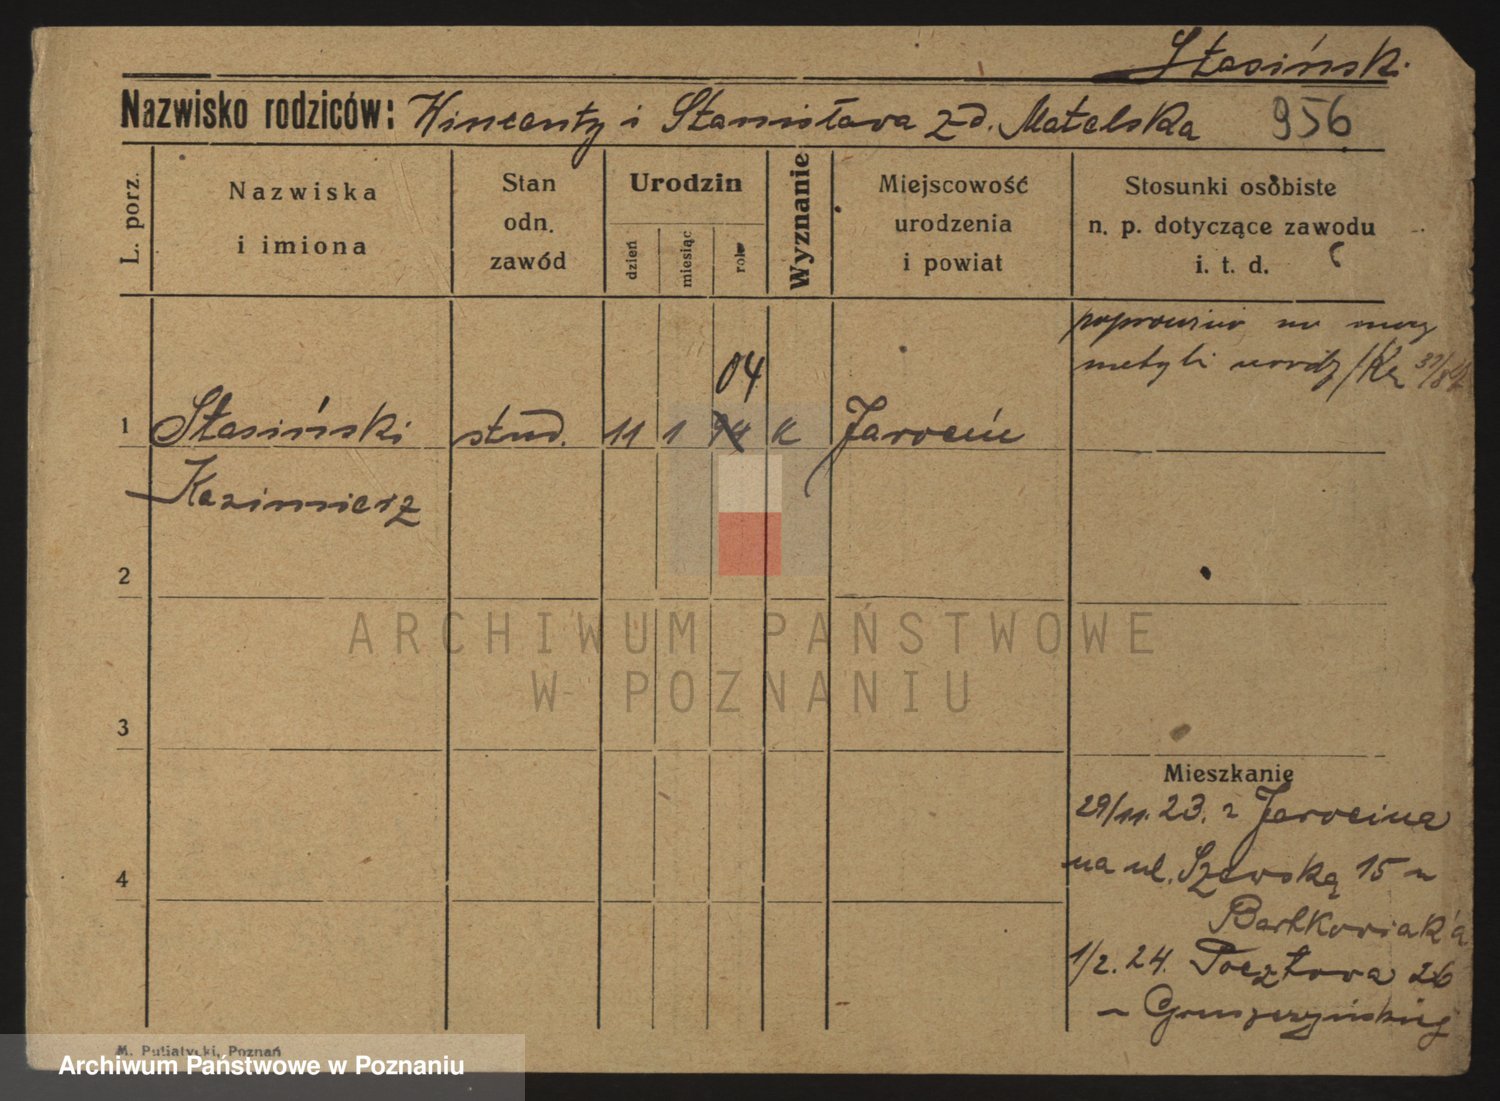 Stasiński
Nazwisko rodziców: Wincenty i Stanisława z d. Matelska 956
L. porz.
Nazwiska
i imiona
Stan
odn.
zawód
Urodzin
dzień
miesiąc
rok
Wyznanie
Miejscowość
urodzenia
i powiat
Stosunki osobiste
n. p. dotyczące zawodu
i. t. d.
poprawiono na mocy
metryki urodz
04
1 Stasiński stud. 11 1 94 k Jarocin
Kazimierz
2
3
4
Mieszkanie
29/11. 23. z Jarocina
na ul. Szewską 15 u
Bartkowiak'a
1/2. 24. Pocztowa 26
u Gruszczyńskiej
ARCHIWUM PAŃSTWOWE
W POZNANIU
M. Putiatycki, Poznań
Archiwum Państwowe w Poznaniu